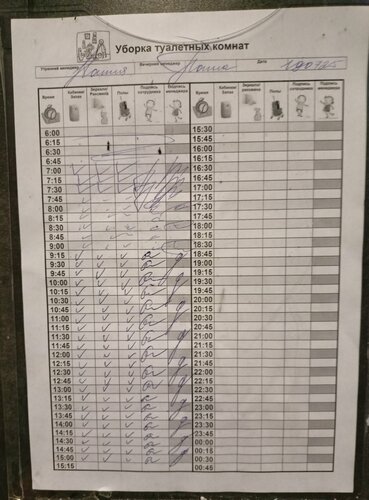 Уборка туалетных комнат
Утренний менеджер Вечерний менеджер Дата
Время Кабинки/ Запах Зеркало/ Раковина Полы Подпись сотрудника Подпись менеджера Время Кабинки/ Запах Зеркало/ Раковина Полы Подпись сотрудника Подпись менеджера
6:00 15:30
6:15 15:45
6:30 16:00
6:45 16:15
7:00 16:30
7:15 16:45
7:30 17:00
7:45 17:15
8:00 17:30
8:15 17:45
8:30 18:00
8:45 18:15
9:00 18:30
9:15 18:45
9:30 19:00
9:45 19:15
10:00 19:30
10:15 19:45
10:30 20:00
10:45 20:15
11:00 20:30
11:15 20:45
11:30 21:00
11:45 21:15
12:00 21:30
12:15 21:45
12:30 22:00
12:45 22:15
13:00 22:30
13:15 22:45
13:30 23:00
13:45 23:15
14:00 23:30
14:15 23:45
14:30 00:00
14:45 00:15
15:00 00:30
15:15 00:45